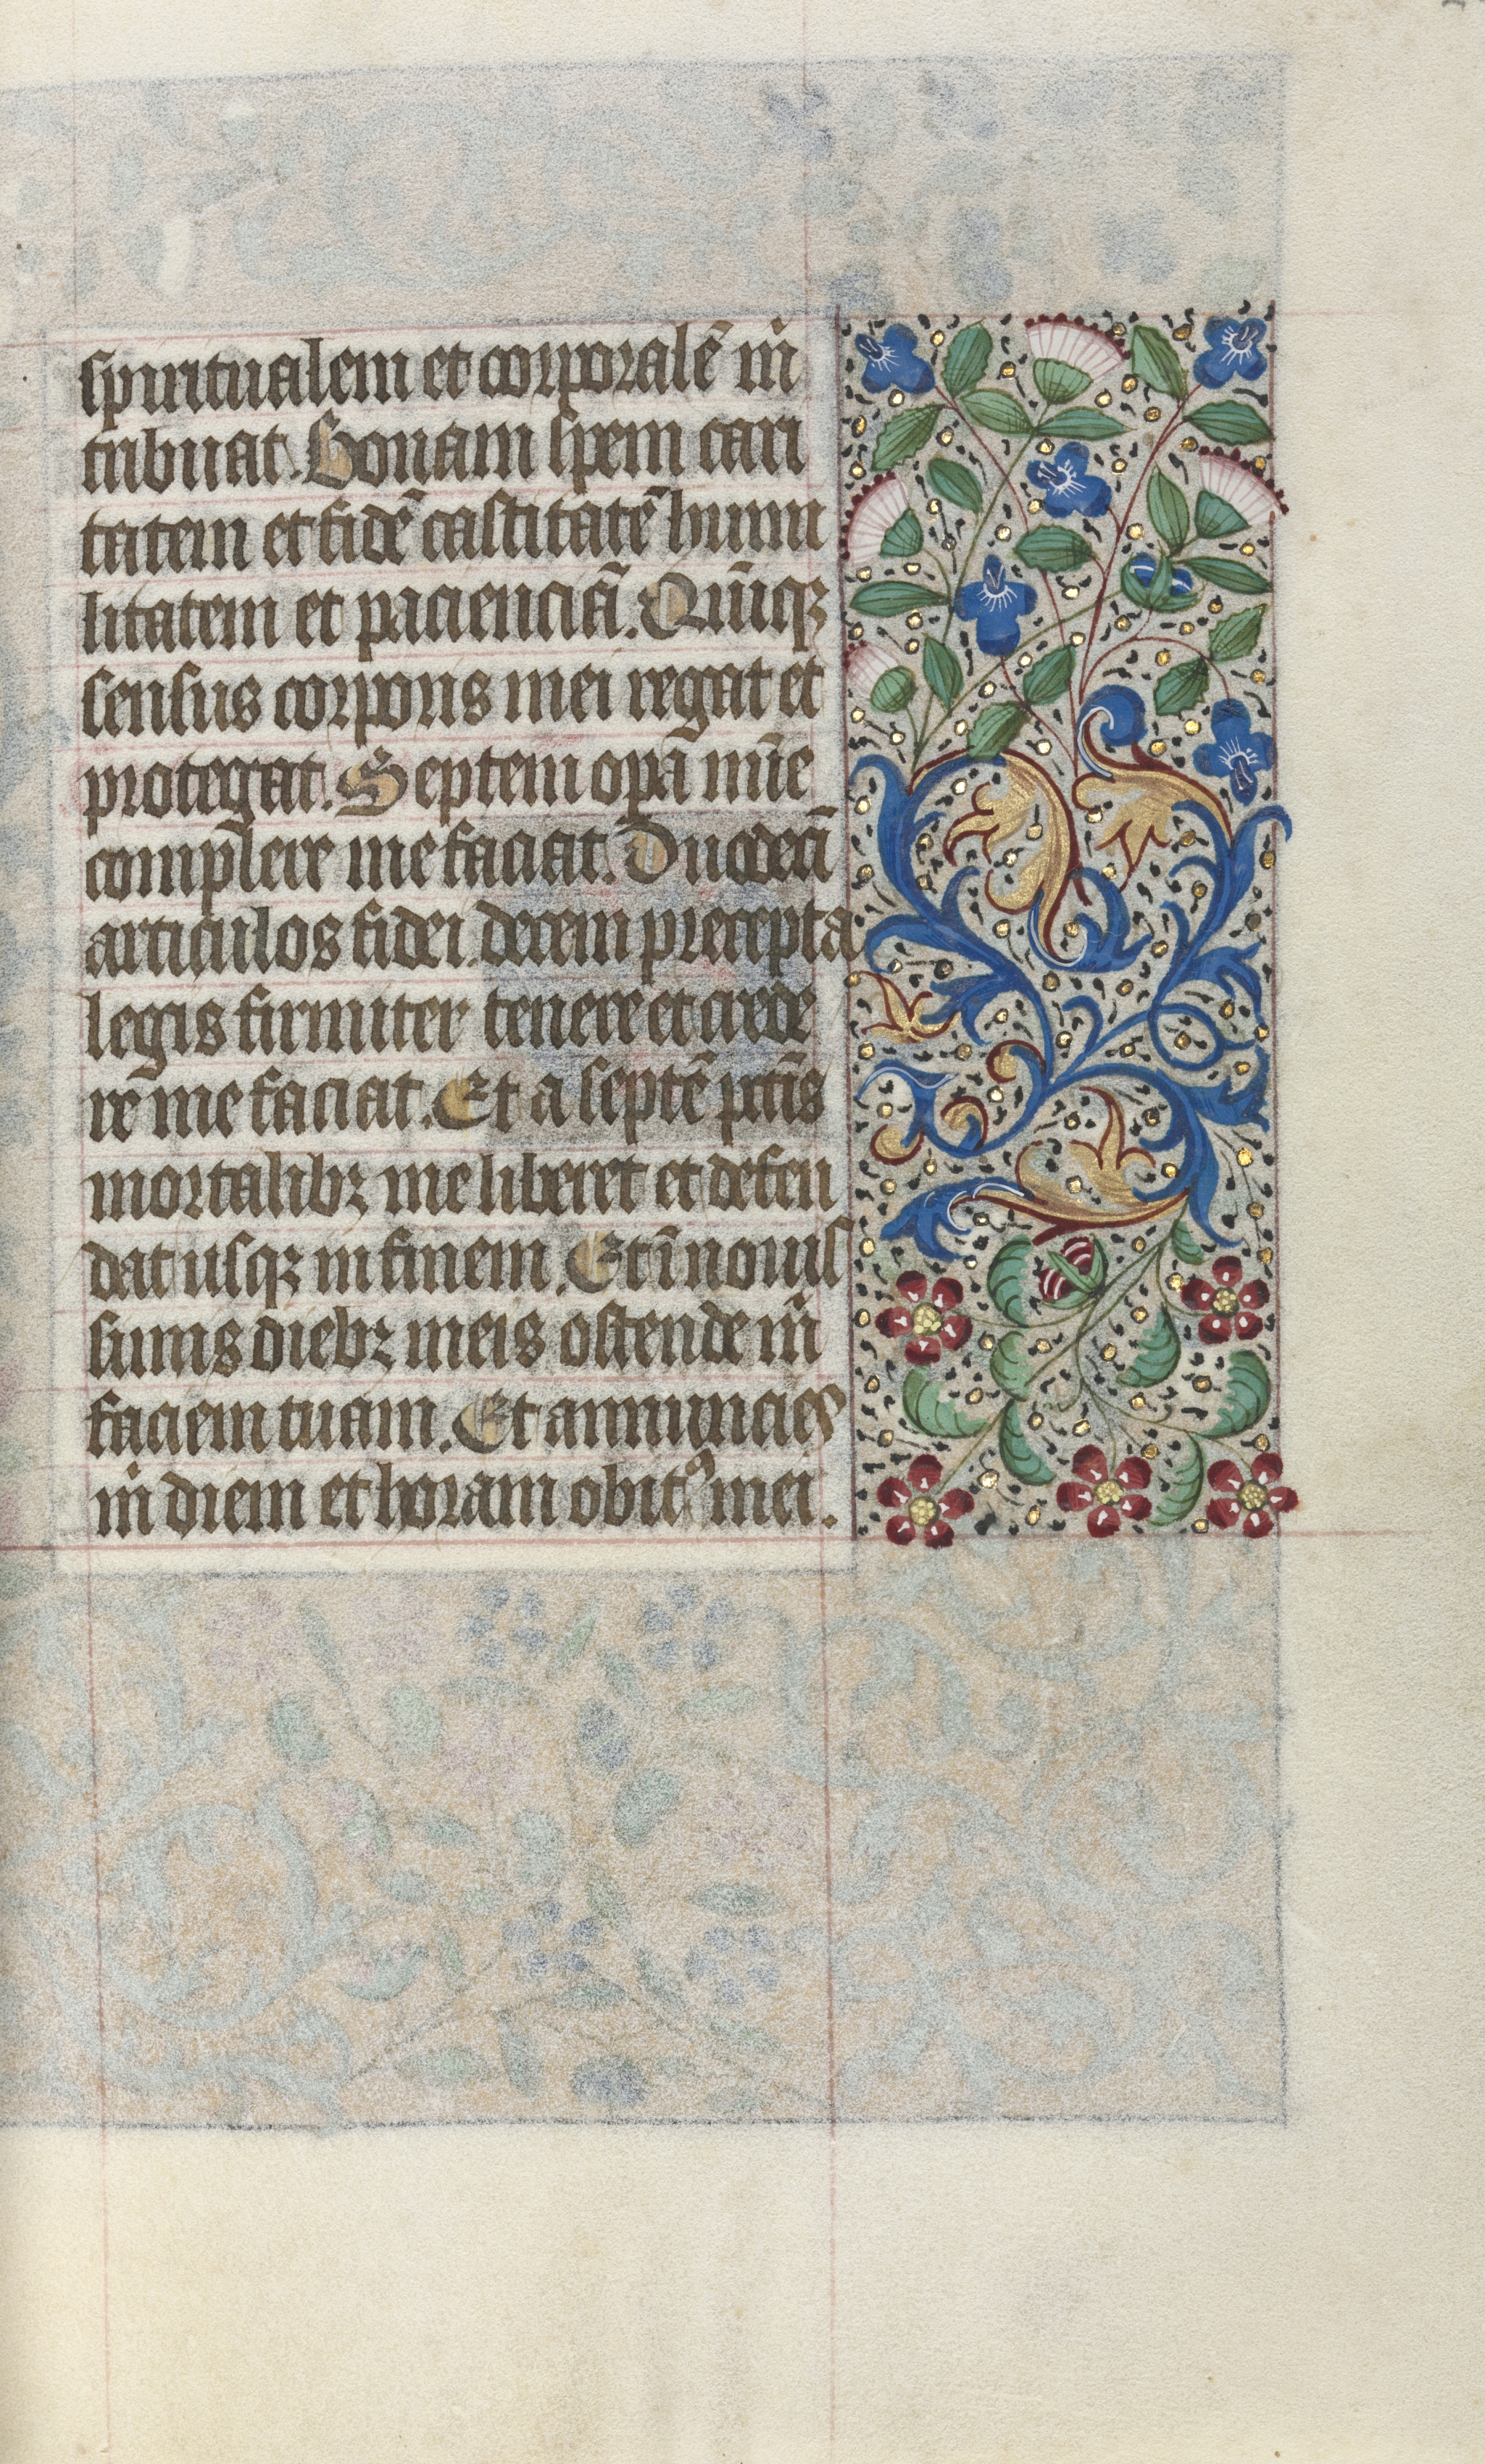 spiritualem et corporalē m̄
tribuat. Bonam spem cari
tatem et fidē castitatē humi
litatem et pacienciā. Quīqꝫ
sensus corporis mei regat et
protegat. Septem opā mīe
comp̄lere me faciat. Duodecī
articulos fidei decem precepta
legis firmiter tenere et crede
rē me faciat. Et a septē pctīs
mortalibꝫ me liberet et defen
dat usqꝫ in finem. Et ī nouis
simis diebꝫ meis ostende m̄
faciem tuam. Et annuncies
m̄ diem et horam obitꝰ mei.